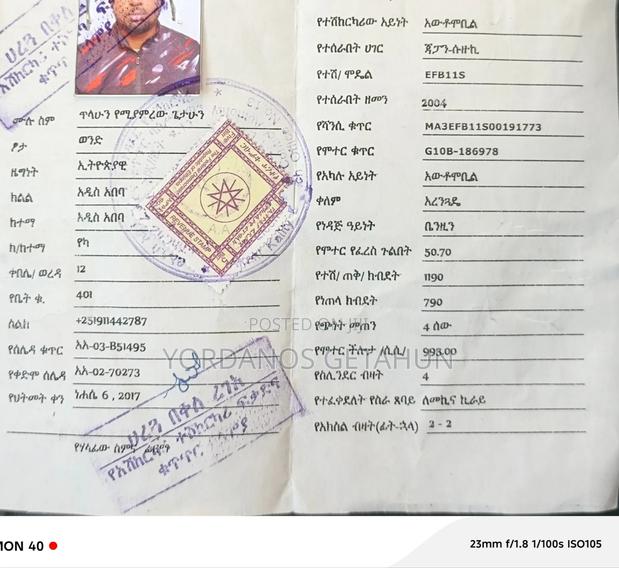 ሙሉ ስም ጥላሁን የሚያምረው ጌታሁን
ፆታ ወንድ
ዜግነት ኢትዮጵያዊ
ክልል አዲስ አበባ
ከተማ አዲስ አበባ
ክ/ከተማ የካ
ቀበሌ/ ወረዳ 12
የቤት ቁ. 401
ስልክ +251911442787
የሰሌዳ ቁጥር አአ-03-B51495
የቀድሞ ሰሌዳ አአ-02-70273
የህትመት ቀን ነሐሴ 6 , 2017
የሃላፊው ስምና ፊርማ
የተሽከርካሪው አይነት አውቶሞቢል
የተሰራበት ሀገር ጃፓን-ሱዙኪ
የተሽ/ ሞዴል EFB11S
የተሰራበት ዘመን 2004
የሻንሲ ቁጥር MA3EFB11S00191773
የሞተር ቁጥር G10B-186978
የአካሉ አይነት አውቶሞቢል
ቀለም አረንጓዴ
የነዳጅ ዓይነት ቤንዚን
የሞተር የፈረስ ጉልበት 50.70
የተሽ/ ጠቅ/ ክብደት 1190
የነጠላ ክብደት 790
የጭነት መጠን 4 ሰው
የሞተር ችሎታ /ሲሲ/ 993.00
የሲሊንደር ብዛት 4
የተፈቀደለት የስራ ጸባይ ለመኪና ኪራይ
የአክስል ብዛት(ፊት-ኋላ) 2 - 2
REVENUE STAMP
A.A
POSTED ON JIJI
YORDANOS GETAHUN
MON 40
23mm f/1.8 1/100s ISO105